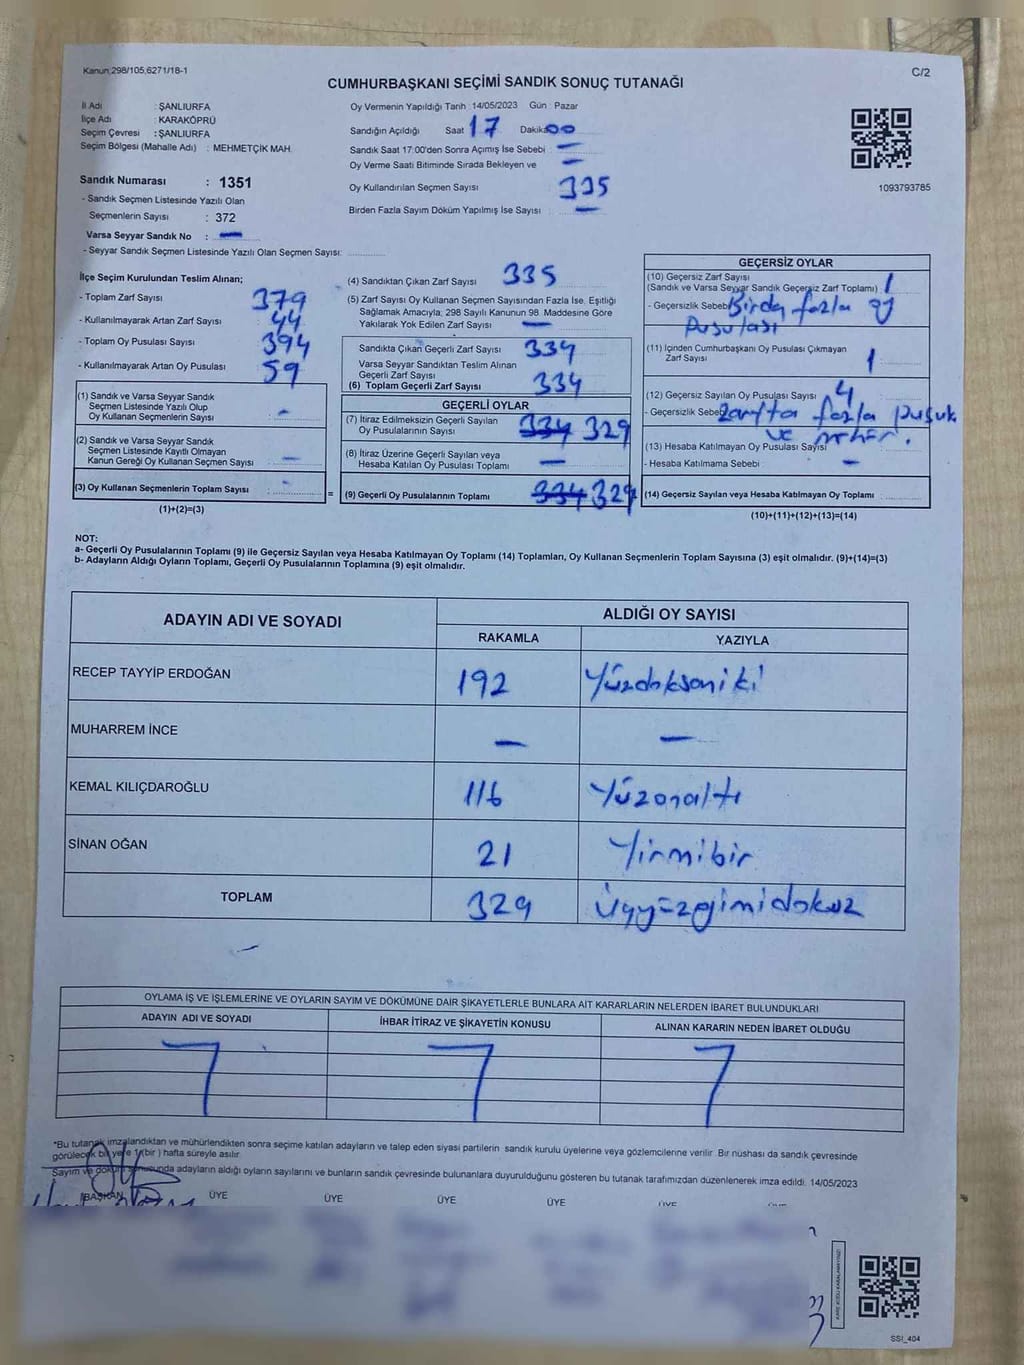 Kanun;298/105,6271/18-1
C/2
CUMHURBAŞKANI SEÇİMİ SANDIK SONUÇ TUTANAĞI
İl Adı : ŞANLIURFA
İlçe Adı : KARAKÖPRÜ
Seçim Çevresi : ŞANLIURFA
Seçim Bölgesi (Mahalle Adı) : MEHMETÇİK MAH.
Sandık Numarası : 1351
- Sandık Seçmen Listesinde Yazılı Olan
Seçmenlerin Sayısı : 372
Varsa Seyyar Sandık No : —
- Seyyar Sandık Seçmen Listesinde Yazılı Olan Seçmen Sayısı:
Oy Vermenin Yapıldığı Tarih :14/05/2023 Gün : Pazar
Sandığın Açıldığı Saat 17 Dakika 00
Sandık Saat 17:00'den Sonra Açımış İse Sebebi : —
Oy Verme Saati Bitiminde Sırada Bekleyen ve —
Oy Kullandırılan Seçmen Sayısı 335
Birden Fazla Sayım Döküm Yapılmış İse Sayısı : —
1093793785
İlçe Seçim Kurulundan Teslim Alınan;
- Toplam Zarf Sayısı 379
- Kullanılmayarak Artan Zarf Sayısı 44
- Toplam Oy Pusulası Sayısı 394
- Kullanılmayarak Artan Oy Pusulası 59
(1) Sandık ve Varsa Seyyar Sandık
Seçmen Listesinde Yazılı Olup
Oy Kullanan Seçmenlerin Sayısı : -
(2) Sandık ve Varsa Seyyar Sandık
Seçmen Listesinde Kayıtlı Olmayan
Kanun Gereği Oy Kullanan Seçmen Sayısı —
(3) Oy Kullanan Seçmenlerin Toplam Sayısı : =
(1)+(2)=(3)
(4) Sandıktan Çıkan Zarf Sayısı 335
(5) Zarf Sayısı Oy Kullanan Seçmen Sayısından Fazla İse, Eşitliği
Sağlamak Amacıyla; 298 Sayılı Kanunun 98. Maddesine Göre
Yakılarak Yok Edilen Zarf Sayısı —
Sandıkta Çıkan Geçerli Zarf Sayısı 334
Varsa Seyyar Sandıktan Teslim Alınan
Geçerli Zarf Sayısı
(6) Toplam Geçerli Zarf Sayısı 334
GEÇERLİ OYLAR
(7) İtiraz Edilmeksizin Geçerli Sayılan
Oy Pusulalarının Sayısı 334 329
(8) İtiraz Üzerine Geçerli Sayılan veya
Hesaba Katılan Oy Pusulası Toplamı —
(9) Geçerli Oy Pusulalarının Toplamı 334 329
GEÇERSİZ OYLAR
(10) Geçersiz Zarf Sayısı
(Sandık ve Varsa Seyyar Sandık Geçersiz Zarf Toplamı) 1
- Geçersizlik Sebebi Birden fazla oy
pusulası
(11) İçinden Cumhurbaşkanı Oy Pusulası Çıkmayan
Zarf Sayısı 1
(12) Geçersiz Sayılan Oy Pusulası Sayısı 4
- Geçersizlik Sebebi zarfta fazla
ve
(13) Hesaba Katılmayan Oy Pusulası Sayısı
- Hesaba Katılmama Sebebi —
(14) Geçersiz Sayılan veya Hesaba Katılmayan Oy Toplamı
(10)+(11)+(12)+(13)=(14)
NOT:
a- Geçerli Oy Pusulalarının Toplamı (9) ile Geçersiz Sayılan veya Hesaba Katılmayan Oy Toplamı (14) Toplamları, Oy Kullanan Seçmenlerin Toplam Sayısına (3) eşit olmalıdır. (9)+(14)=(3)
b- Adayların Aldığı Oyların Toplamı, Geçerli Oy Pusulalarının Toplamına (9) eşit olmalıdır.
ADAYIN ADI VE SOYADI
ALDIĞI OY SAYISI
RAKAMLA YAZIYLA
RECEP TAYYİP ERDOĞAN 192 Yüzdoksaniki
MUHARREM İNCE — —
KEMAL KILIÇDAROĞLU 116 Yüzonaltı
SİNAN OĞAN 21 Yirmibir
TOPLAM 329
OYLAMA İŞ VE İŞLEMLERİNE VE OYLARIN SAYIM VE DÖKÜMÜNE DAİR ŞİKAYETLERLE BUNLARA AİT KARARLARIN NELERDEN İBARET BULUNDUKLARI
ADAYIN ADI VE SOYADI İHBAR İTİRAZ VE ŞİKAYETİN KONUSU ALINAN KARARIN NEDEN İBARET OLDUĞU
*Bu tutanak imzalandıktan ve mühürlendikten sonra seçime katılan adayların ve talep eden siyasi partilerin sandık kurulu üyelerine veya gözlemcilerine verilir. Bir nüshası da sandık çevresinde
görülecek bir yere 1 (bir) hafta süreyle asılır.
Sayım ve döküm sonucunda adayların aldığı oyların sayılarını ve bunların sandık çevresinde bulunanlara duyurulduğunu gösteren bu tutanak tarafımızdan düzenlenerek imza edildi. 14/05/2023
BAŞKAN ÜYE ÜYE ÜYE ÜYE ÜYE
SSI_404